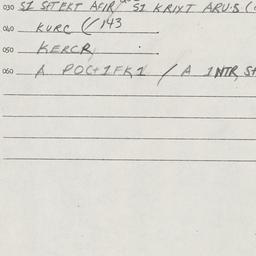 030 SI SFTEKT AFIR SI KRIYT ARU:S (
040 KURC (/143
050 KERCR
060 A POCTIFKI / A INTR, ST